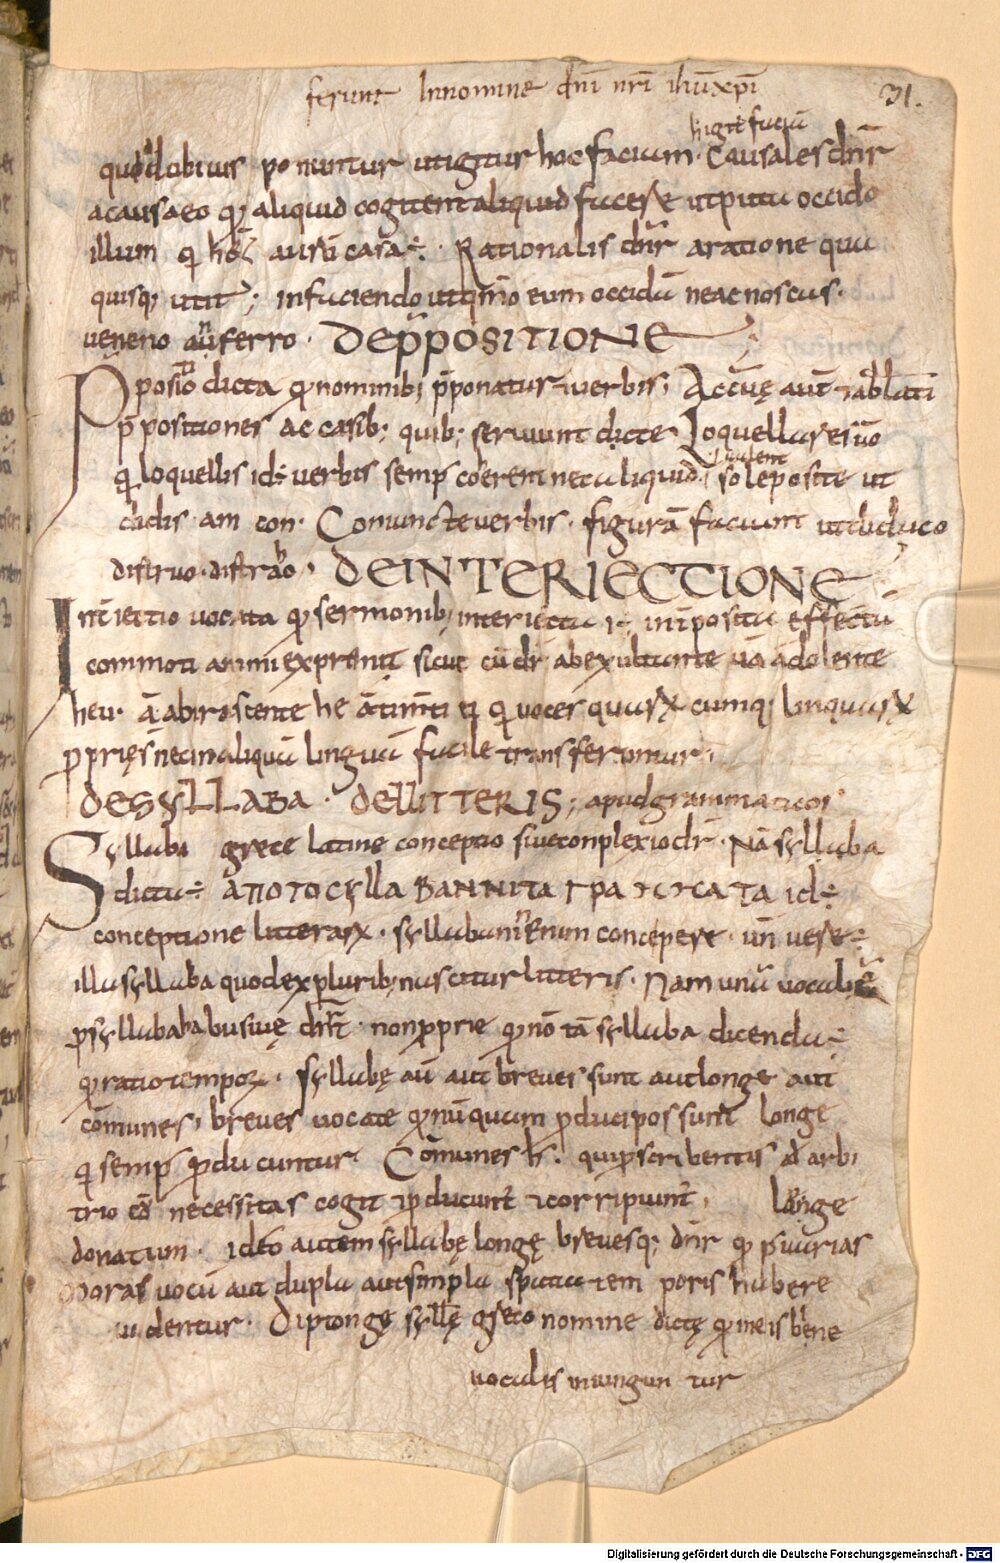 ferunt Innomine dn̄i nr̄i ihū xp̄i
31.
higit faciā
quod dubiuis ponuntur utigitur hoc faciam. Causales dn̄r
acausa eo qd aliquid cogitent aliquid facere ut puta occido
illum q̄ hab& auri casa÷. Rationalis dn̄r aratione qua
quisq; utit; infaciendo utquom̄o eum occidā ne agnoscas.
ueneno an ferro. DEP̄POSITIONE
P̄positio dicta q̄ nominib; p̄ponatur & uerbis; Accūę aūt & ablati
p̄positiones ac casib; quib; seruiunt dicte Loquellares uō
q̄ loquellis id÷ uerbis semp̄ coherent nec aliquid
ualent
sole posite ut
di dis am con. Coniuncte uerbis. figurā faciunt ut diduco
distruo. distrabo. DEINTERIECTIONE
Int̄iectio uocata q̄ sermonib; interiecta i; int̄posita effectū
commoti animi exprimit sicut cū dr̄ ab exultante ua a dolente
heu. ā ab irascente he ā tim̄ti ei q̄ uoces quarꝝ cumq; linquarꝝ
p̄prięs nec in aliquā linguā facile transferuntur;
DESYLLABA. DELITTERIS; apud grammaticos
Syllaba grece latine conceptio siue conplexio dr̄. Nā syllaba
dicta÷ ΑΠΟΤΟCYLLA BANNITA ΓΡΑ id÷
conceptione litterarꝝ. syllabanin enim concepere. un̄ uere÷
illa syllaba quod ex pluribus nascitur litteris. Nam unā uocalē
p̄ syllaba abusiuę dn̄t. non p̄prie q̄ nō tā syllaba dicenda÷
q̄ ratio temporꝝ. syllabę aū aut breues sunt aut longe aut
cōmunes; breues uocate q̄ nūquam p̄duci possunt longe
q̄ semp̄ p̄ducuntur. Cōmunes h. qui p̄ scribentis ad arbi
trio cū necessitas cogit & p̄ducunt & corripiunt. Lange
donatum. ideo autem syllabę longę breuesq; dn̄r q̄ p̄ uarias
moras uocū aut dupla aut simpla spatia temporis habere
uidentur. Diptongę syllę greco nomine dictę q̄ in eis bene
uocalis iniungun tur
Digitalisierung gefördert durch die Deutsche Forschungsgemeinschaft - DFG